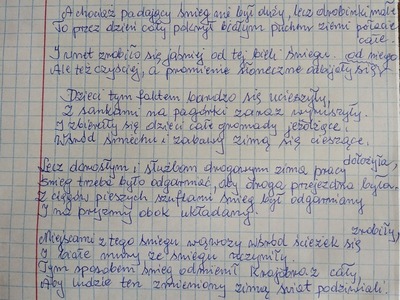 A chociaż padający śnieg nie był duży, lecz drobinki małe
To przez dzień cały pokrył białym puchem ziemi połacie
całe.
I wnet zrobiło się jaśniej od tej bieli śniegu
Ale też czyściej, a promienie słoneczne odbijały się od niego
Dzieci tym faktem bardzo się ucieszyły,
Z sankami na pagórki zaraz wyruszyły.
I zbierały się dzieci całe gromady jeżdżące,
Wśród śmiechu i zabawy zimą się cieszące.
Lecz dorosłym i służbom drogowym zima pracy dołożyła,
Śnieg trzeba było odgarniać, aby droga przejezdna była.
Z ciągów pieszych szuflami śnieg był odgarniany
I na pryzmy obok układany.
Miejscami z tego śniegu wąwozy wśród ścieżek się zrobiły,
I białe mury ze śniegu
Tym sposobem śnieg odmienił Krajobraz cały,
Aby ludzie ten zmieniony zimą świat podziwiali.